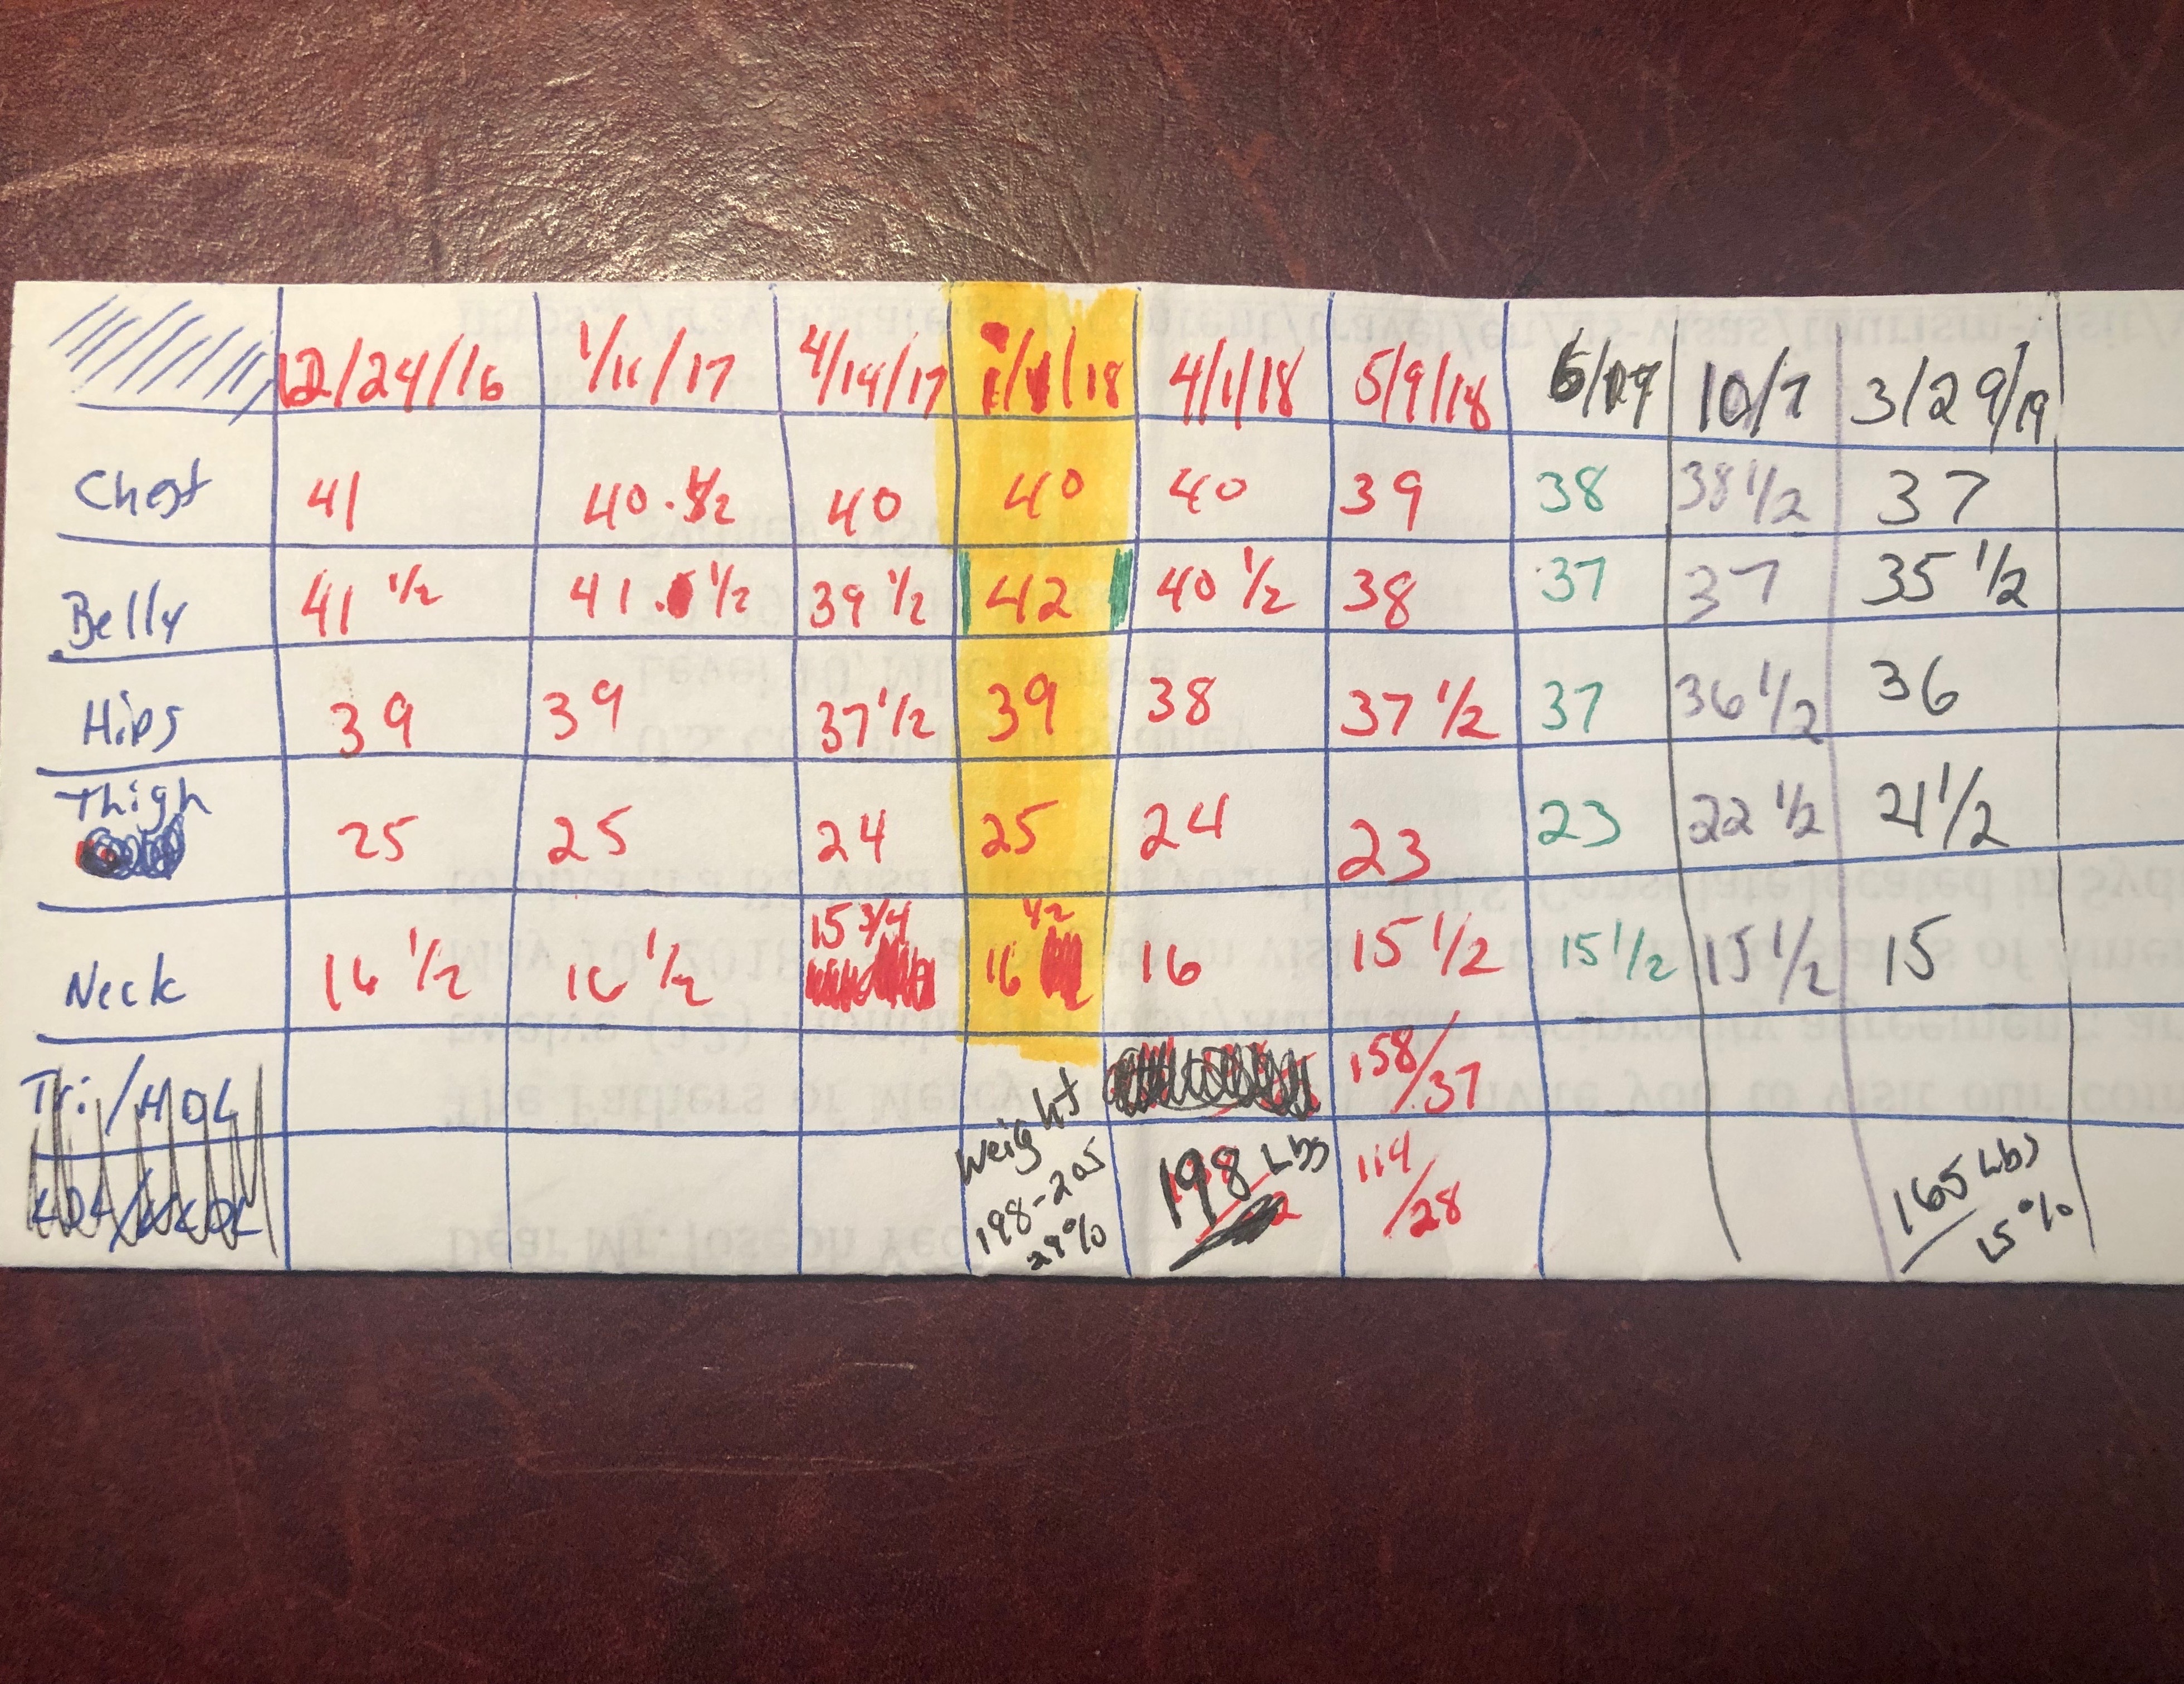 12/24/16 1/11/17 4/14/17 1/1/18 4/1/18 5/9/18 10/7 3/29/19
Chest 41 40.1/2 40 40 40 39 38 38 1/2 37
Belly 41 1/2 41. 1/2 39 1/2 42 40 1/2 38 37 37 35 1/2
Hips 39 39 37 1/2 39 38 37 1/2 37 36 1/2 36
Thigh 25 25 24 25 24 23 23 22 1/2 21 1/2
Neck 16 1/2 16 1/2 15 3/4 16 1/2 16 15 1/2 15 1/2 15 1/2 15
Tri/HDL 158/37
Weight
198-205
29%
198 Lbs
114/28
165 Lbs
15%